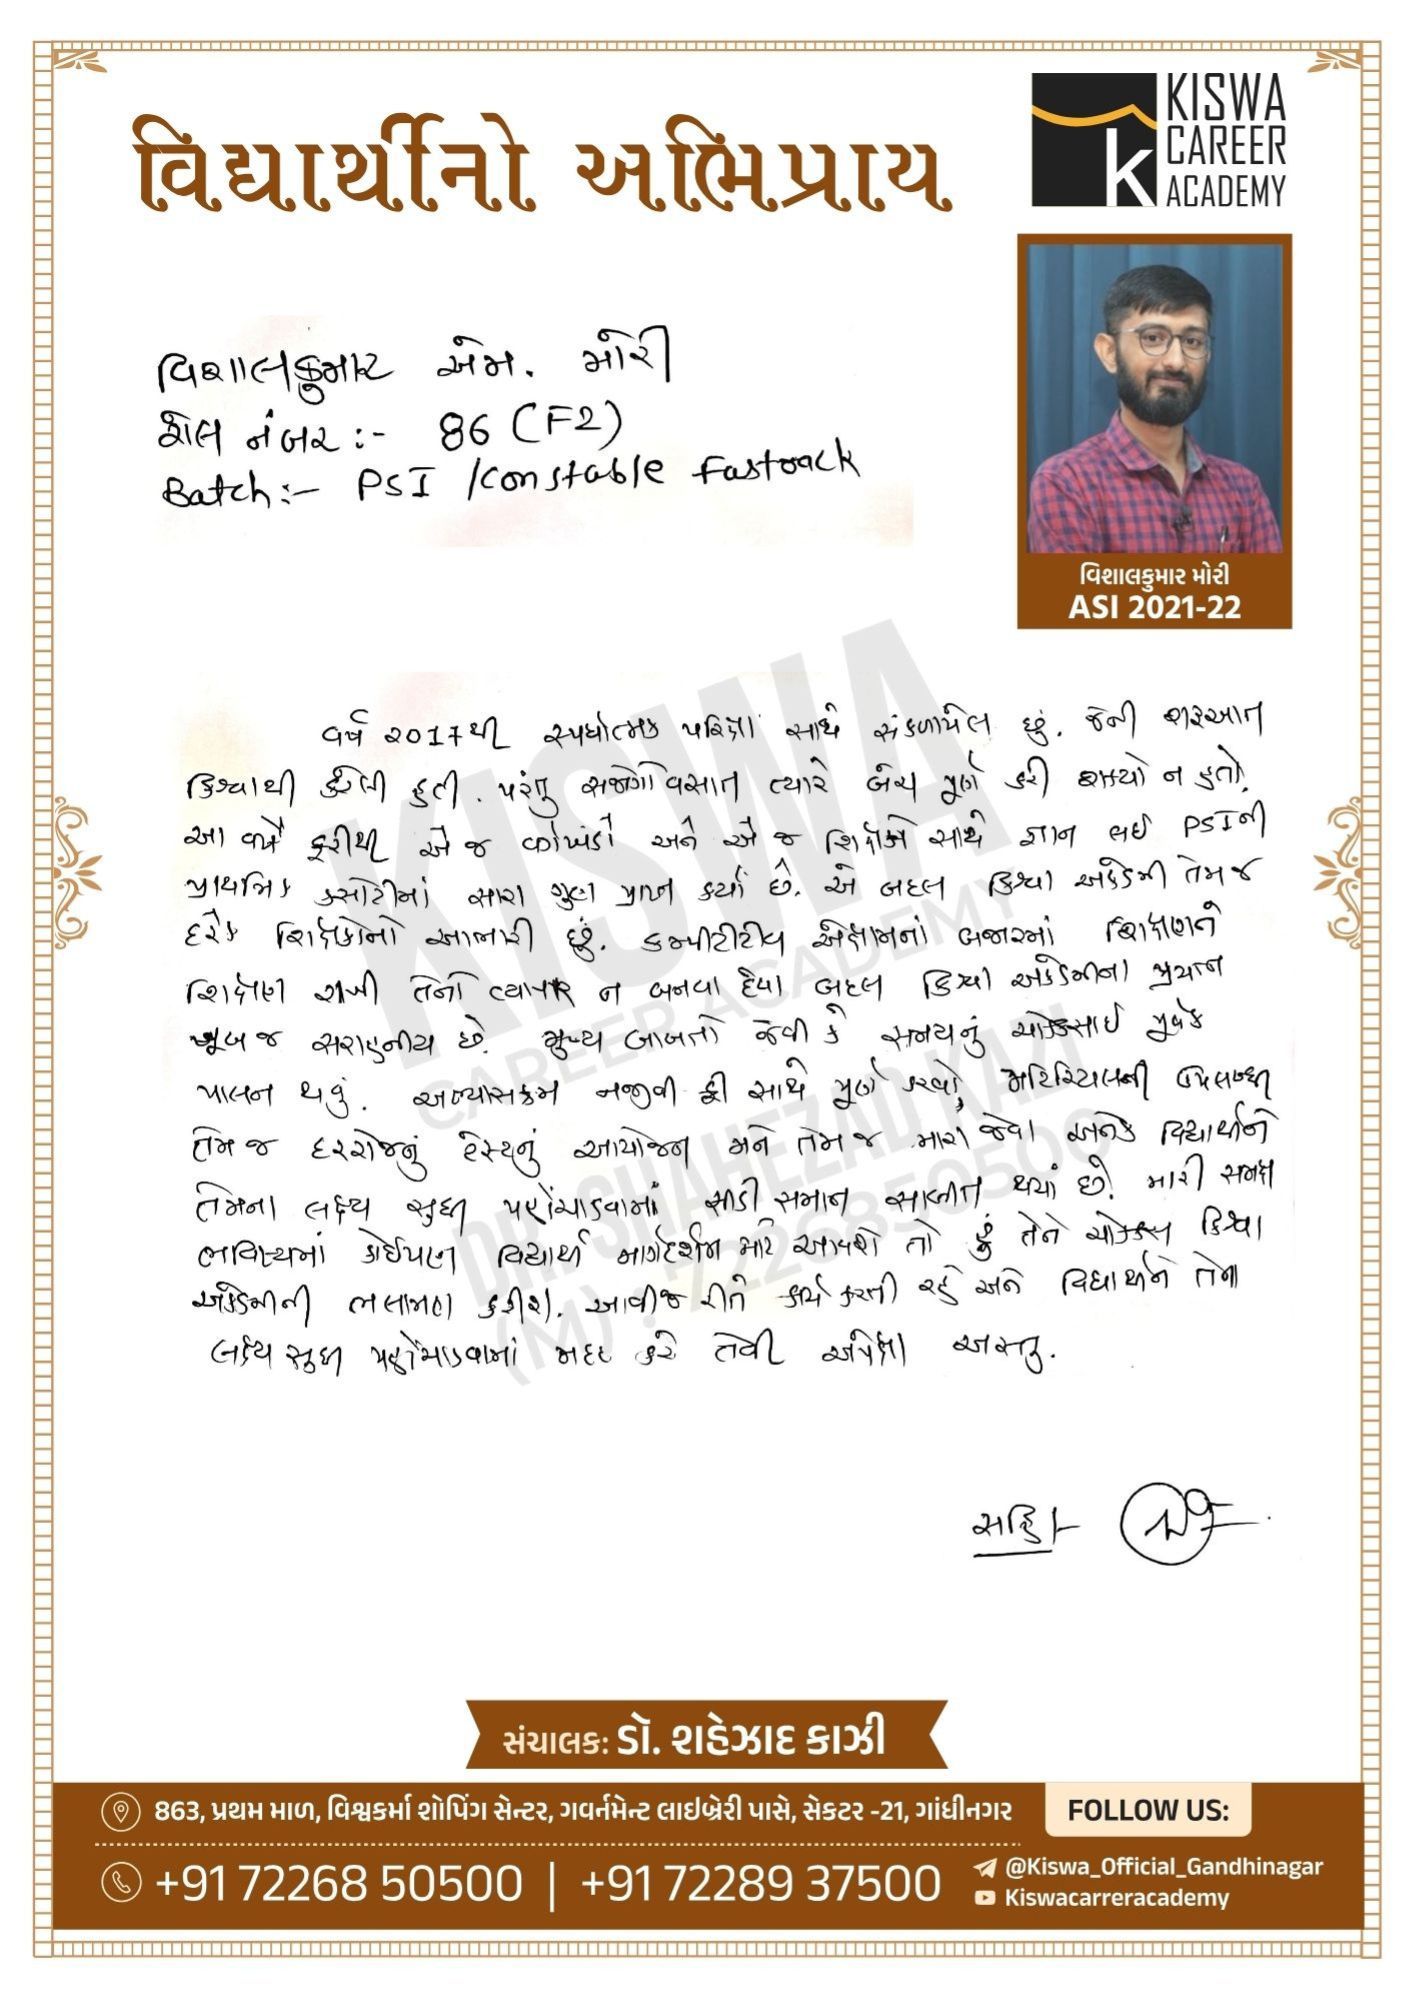 વિદ્યાર્થીનો અભિપ્રાય
KISWA
CAREER
ACADEMY
વિશાલકુમાર એમ. મોરી
રોલ નંબર :- 86 (F2)
Batch :- PSI / Constable Fastrack
વિશાલકુમાર મોરી
ASI 2021-22
વર્ષ 2017થી સ્પર્ધાત્મક પરિક્ષા સાથે સંકળાયેલ છું. જેની શરૂઆત
કિશ્વાથી કરેલી હતી. પરંતુ સંજોગોવસાત ત્યારે બેચ પૂર્ણ કરી શક્યો ન હતો.
આ વર્ષે ફરીથી એ જ વર્ગખંડો અને એ જ શિક્ષકો સાથે જ્ઞાન લઇ PSIની
પ્રાથમિક કસોટીમાં સારા ગુણ પ્રાપ્ત કર્યાં છે. એ બદલ કિશ્વા એકેડેમી તેમ જ
દરેક શિક્ષકોનો આભારી છું. કમ્પીટીટીવ એક્ષામનાં બજારમાં શિક્ષણને
શિક્ષણ રાખી તેનો વ્યાપાર ન બનવા દેવા બદલ કિશ્વા એકેડેમીના પ્રયાન
ખૂબ જ સરાહનીય છે. મુખ્ય બાબતો જેવી કે સમયનું ચોક્કસાઇ પૂર્વક
પાલન થવું. અભ્યાસક્રમ નજીવી ફી સાથે પૂર્ણ કરવો, મટિરિયલની ઉપલબ્ધી
તેમ જ દરરોજનું ટેસ્ટનું આયોજન મને તેમ જ મારા જેવા અનેક વિદ્યાર્થીને
તેમના લક્ષ્ય સુધી પહોંચાડવામાં સીડી સમાન સાબીત થયાં છે. મારી સમક્ષ
ભવિષ્યમાં કોઈપણ વિદ્યાર્થી માર્ગદર્શન માટે આવશે તો હું તેને ચોક્કસ કિશ્વા
એકેડેમીની ભલામણ કરીશ. આવી જ રીતે કાર્ય કરતી રહે અને વિદ્યાર્થીને તેના
લક્ષ્ય સુધી પહોંચાડવામાં મદદ કરે તેવી અપેક્ષા અસ્તુ.
સહિ :-
KISWA
CAREER ACADEMY
DR. SHAHEZAD KAZI
(M) : 7226850500
સંચાલક: ડૉ. શહેઝાદ કાઝી
863, પ્રથમ માળ, વિશ્વકર્મા શોપિંગ સેન્ટર, ગવર્નમેન્ટ લાઇબ્રેરી પાસે, સેકટર -21, ગાંધીનગર
FOLLOW US:
+91 72268 50500 | +91 72289 37500
@Kiswa_Official_Gandhinagar
Kiswacarreracademy